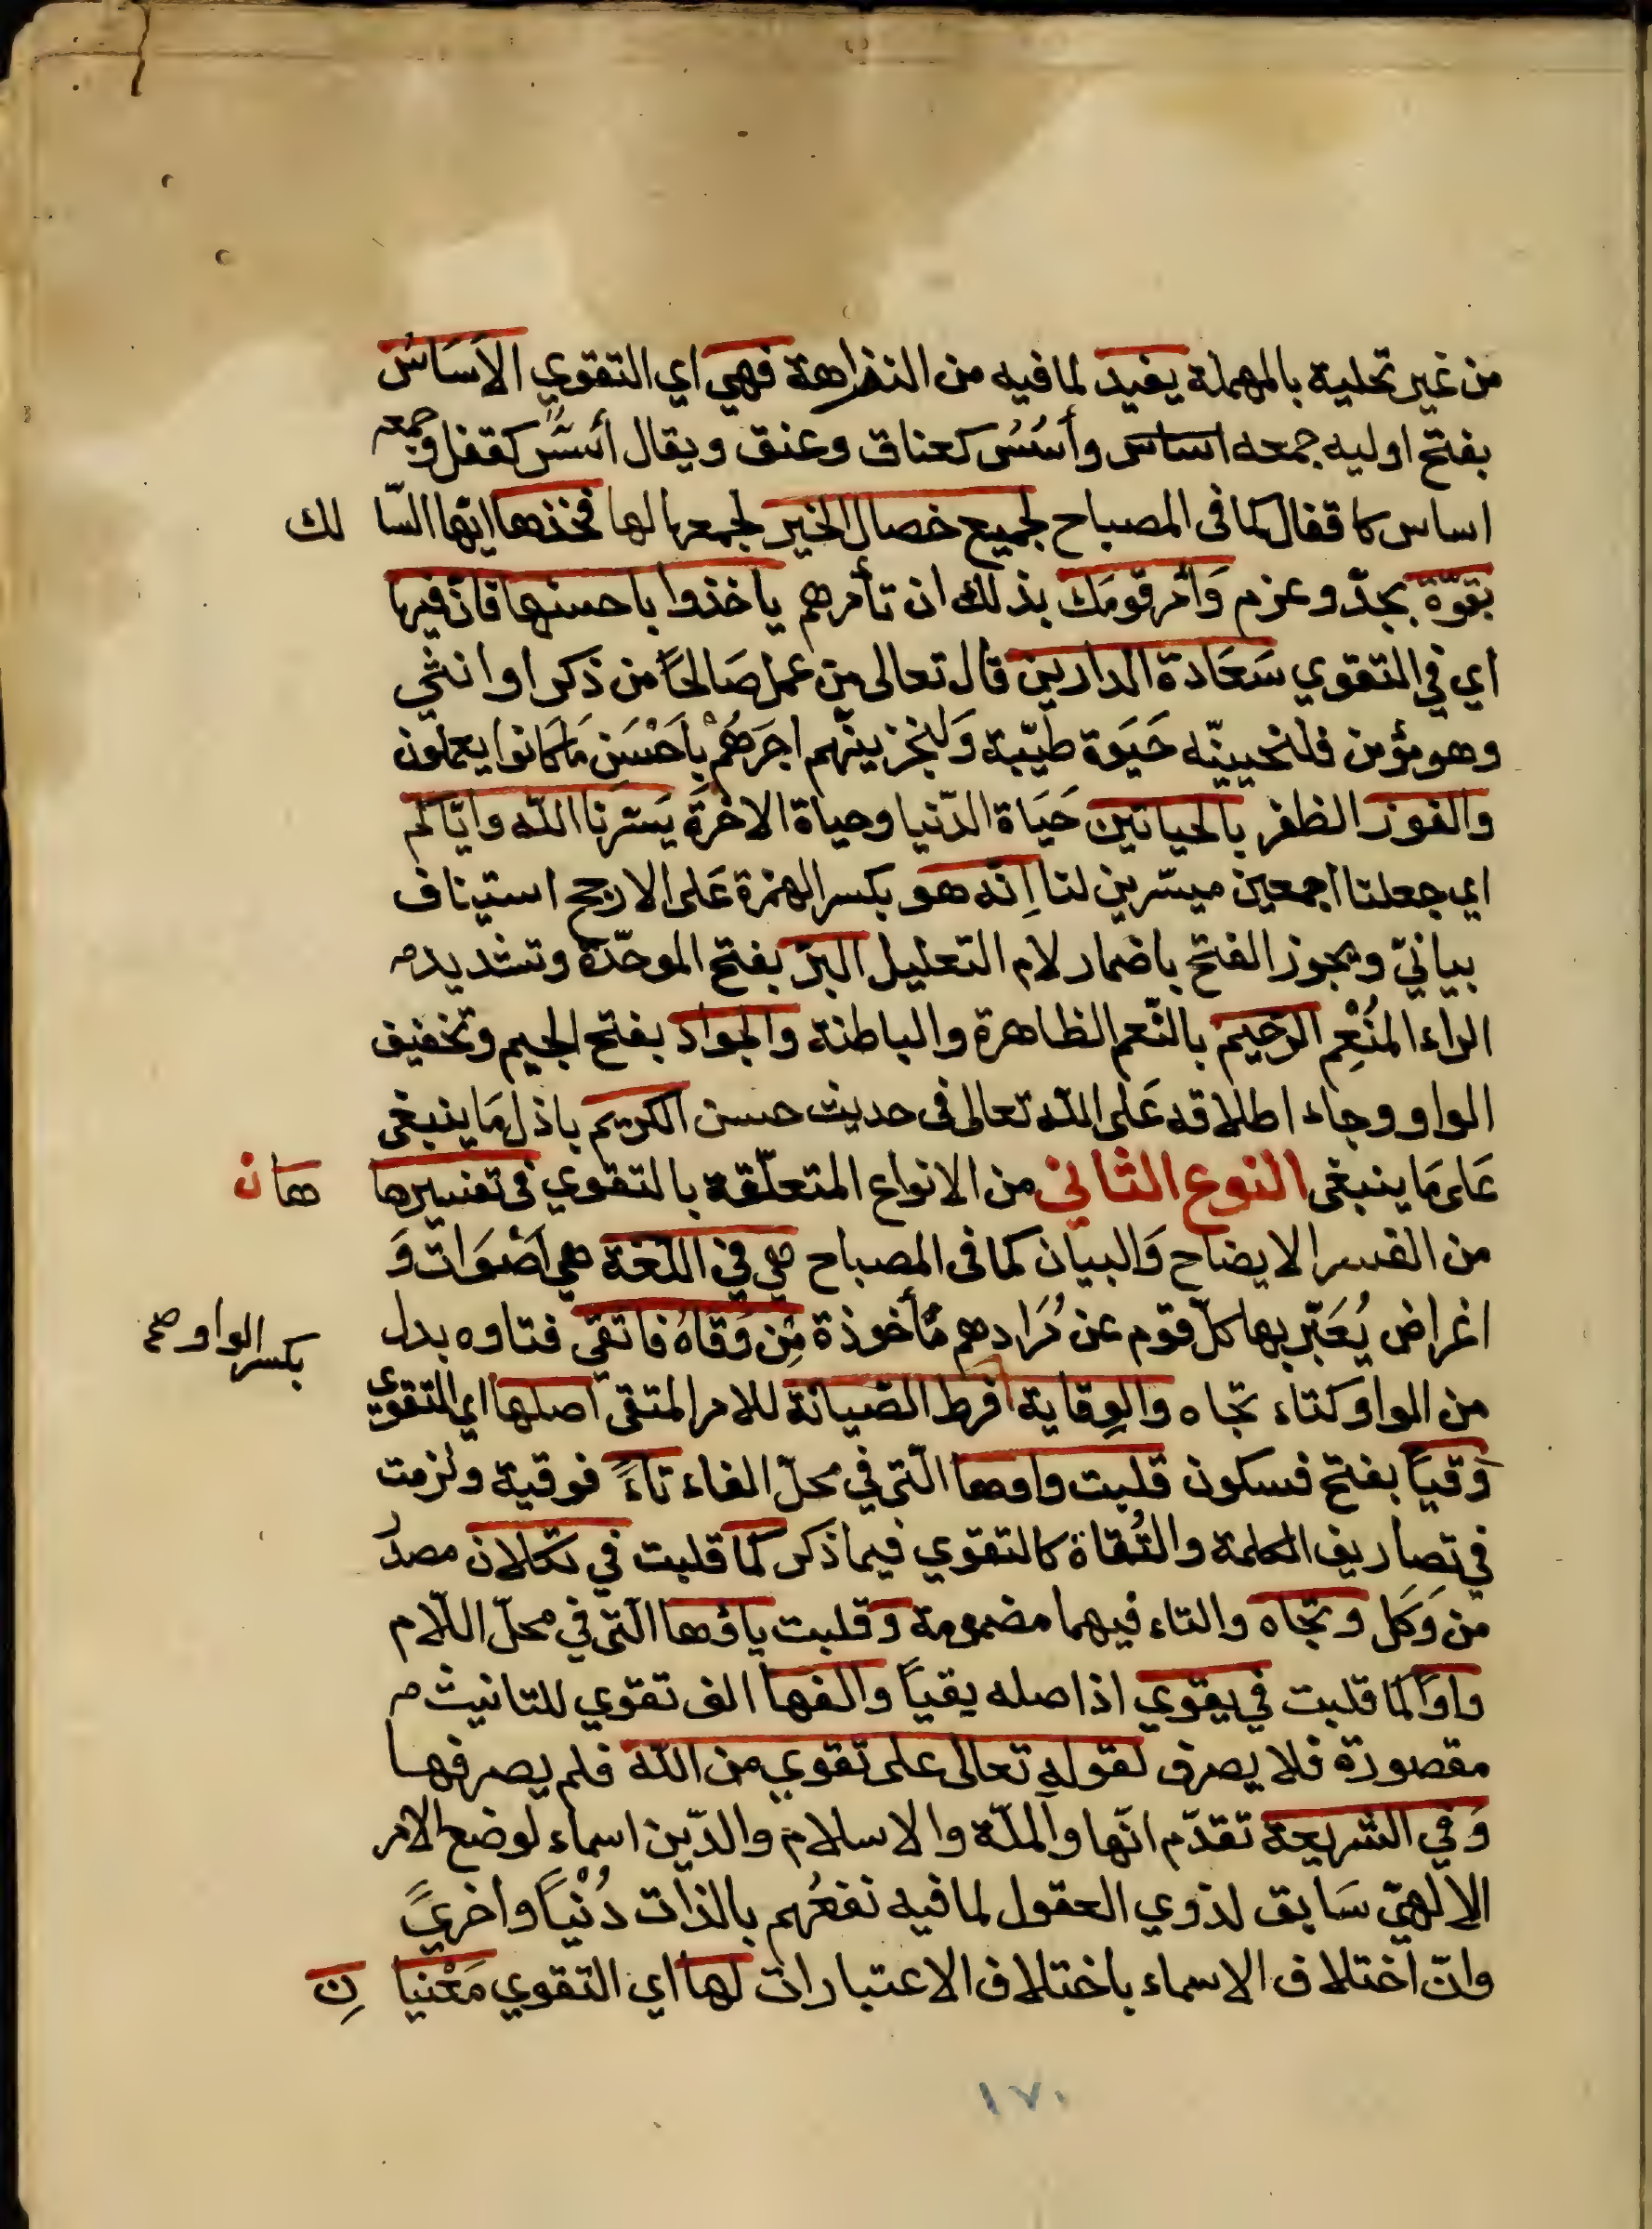 من غير تحلية بالمهملة يفيد لما فيه من النزاهة فهي اي التقوي الاَسَاسُ
بفتح اوليه جمعه اساس وأسُسُ كعناق وعنق ويقال أسُسٌّ كقفل وجمعه
اساس كاقفال كما في المصباح لجميع خصال الخير لجمعها لها فخذها ايّها السّا لك
بقوّة بجدّ وعزم وَأمر قومَك بذلك ان تأمرهم ياخذوا باحسنها فانّ فيها
اي في التقوي سَعَادة الدارين قال تعالى من عمل صَالحاً من ذكر او انثي
وهو مؤمن فلنحيينّه حَيَوة طيّبة وَلنجزينّهم اجرَهُمْ باَحْسَن مَا كانوا يعملون
والفوز الظفر بالحياتين حَيَاة الدّنيا وحياة الاخرَة يَسّرنا اللّه وايّاكم
اي جعلنا اجمعين ميسّرين لنا اِنّه هو بكسر الهمزة عَلى الارجح استيناف
بيانيّ ويجوز الفتح باضمار لام التعليل البرّ بفتح الموحّدة وتشديد
الراء المُنْعِم الرّحيم بالنّعم الظاهرة والباطنة والجواد بفتح الجيم وتخفيف
الواو وجاء اطلاقه عَلى اللّه تعالى في حديث حسن الكريم باذل مَا ينبغي
عَلى مَا ينبغي النوع الثاني من الانواع المتعلّقة بالتقوي في تفسيرها هان
من الفسر الايضاح وَالبيان كما في المصباح هي في اللّغة هي اَصْوَات وَ
اغراض يُعَبّر بها كلّ قوم عن مُرَادهم مَأخوذة مِن وَقاهُ فاتقي فتاوه بدل
بكسر الواو صح
من الواو كتاء تجاه والوِقاية افرط الصّيانة للامر المتقي اصلها اي التقوي
وَقياً بفتح فسكون قلبت واوها الّتي في محلّ الفاء تاءً فوقية ولزمت
في تصاريف الكلمة والتُقاة كالتقوي فيما ذكر كما قلبت في تكلان مصدر
من وَكَل وتجاه والتاء فيهما مضمومة وقلبت ياؤها الّتي في محلّ اللّام
واوًا كما قلبت في يقوي اذ اصله يقياً والفها الف تقوي للتانيث
مقصورة فلا يصرف لقوله تعالى على تقوي من اللّه فلم يصرفها
وَفي الشريعة تقدّم انّها والملّة والاسلام والدّين اسماء لوضع الامر
الالهيّ سَابق لذوي العقول لما فيه نفعُهم بالذات دُنْيَاً واخريً
وانّ اختلاف الاسماء باختلاف الاعتبارات لها اي التقوي مَعْنيا نِ
١٧٠